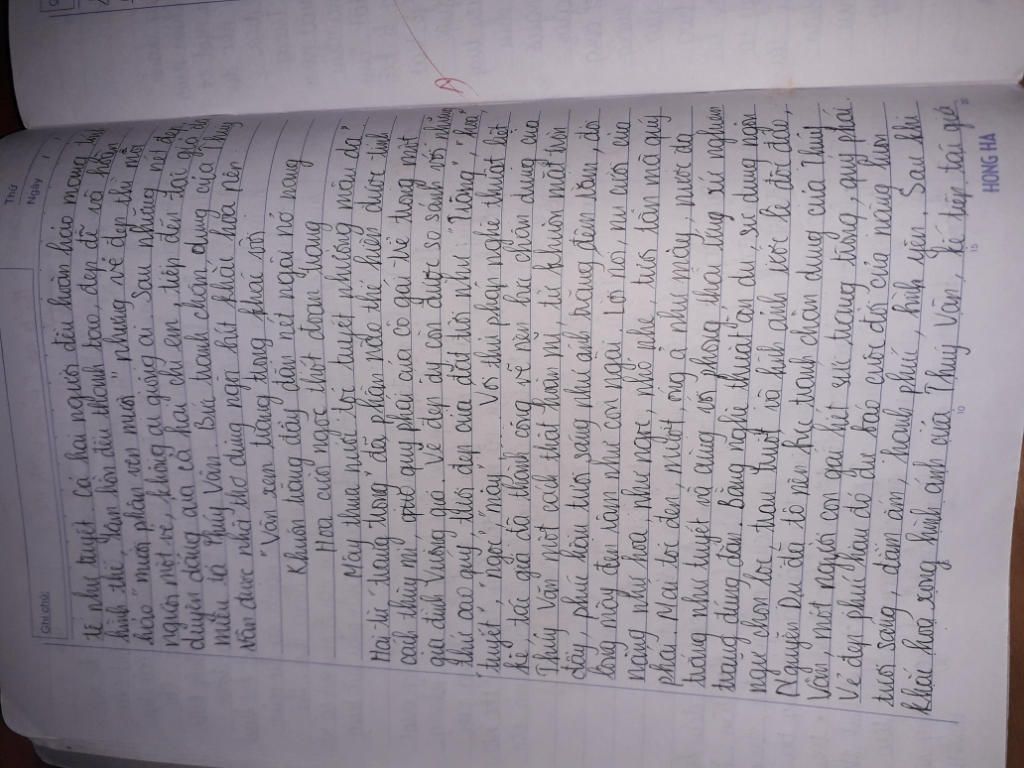 Thứ
Ngày /
Ghi chú:
tê như tuyết. Cả hai người đều hoàn hảo mang từ
hình thể, tâm hồn đều thanh tao, đẹp đẽ vô hồn
hảo "mười phân vẹn mười" nhưng vẻ đẹp thì mỗi
người một vẻ, không ai giống ai. Sau những nét đẹp
duyên dáng của cả hai chị em, tiếp đến tác giả đã
miêu tả Thúy Vân. Bức tranh chân dung của Thúy
Vân được nhà thơ dùng ngòi bút phác họa nên
"Vân xem trang trọng khác vời
Khuôn trăng đầy đặn nét ngài nở nang
Hoa cười ngọc thốt đoan trang
Mây thua nước tóc tuyết nhường màu da"
Hai từ "trang trọng" đã phần nào thể hiện được tính
cách thùy mị, quý phái của cô gái trẻ trong một
gia đình Vương giả. Vẻ đẹp ấy còn được so sánh với những
thứ cao quý, tươi đẹp của đất trời như: "trăng", "hoa",
"tuyết", "ngọc", "mây". Với thi pháp nghệ thuật liệt
kê, tác giả đã thành công vẽ nên bức chân dung của
Thúy Vân một cách thật hoàn mỹ từ khuôn mặt tròn
đầy, phúc hậu tươi sáng như ánh trăng đêm rằm, đôi
lông mày đậm như con ngài. Lời nói, nụ cười của
nàng như hoa, như ngọc, nhỏ nhẹ, tươi tắn mà quý
phái. Mái tóc đen, mượt, óng ả như mây, nước da
trắng như tuyết vô cùng với phong thái uy nghiêm
trang đứng đắn. Bằng nghệ thuật ẩn dụ, sử dụng ngôn
ngữ chọn lọc, trau chuốt và hình ảnh ước lệ độc đáo,
Nguyễn Du đã tô nên bức tranh chân dung của Thúy
Vân một người con gái hết sức trang trọng, quý phái.
Vẻ đẹp phúc hậu đó dự báo cuộc đời của nàng luôn
tươi sáng, đầm ấm, hạnh phúc, bình yên. Sau khi
khắc họa xong hình ảnh của Thúy Vân, kế tiếp, tác giả
HONG HA